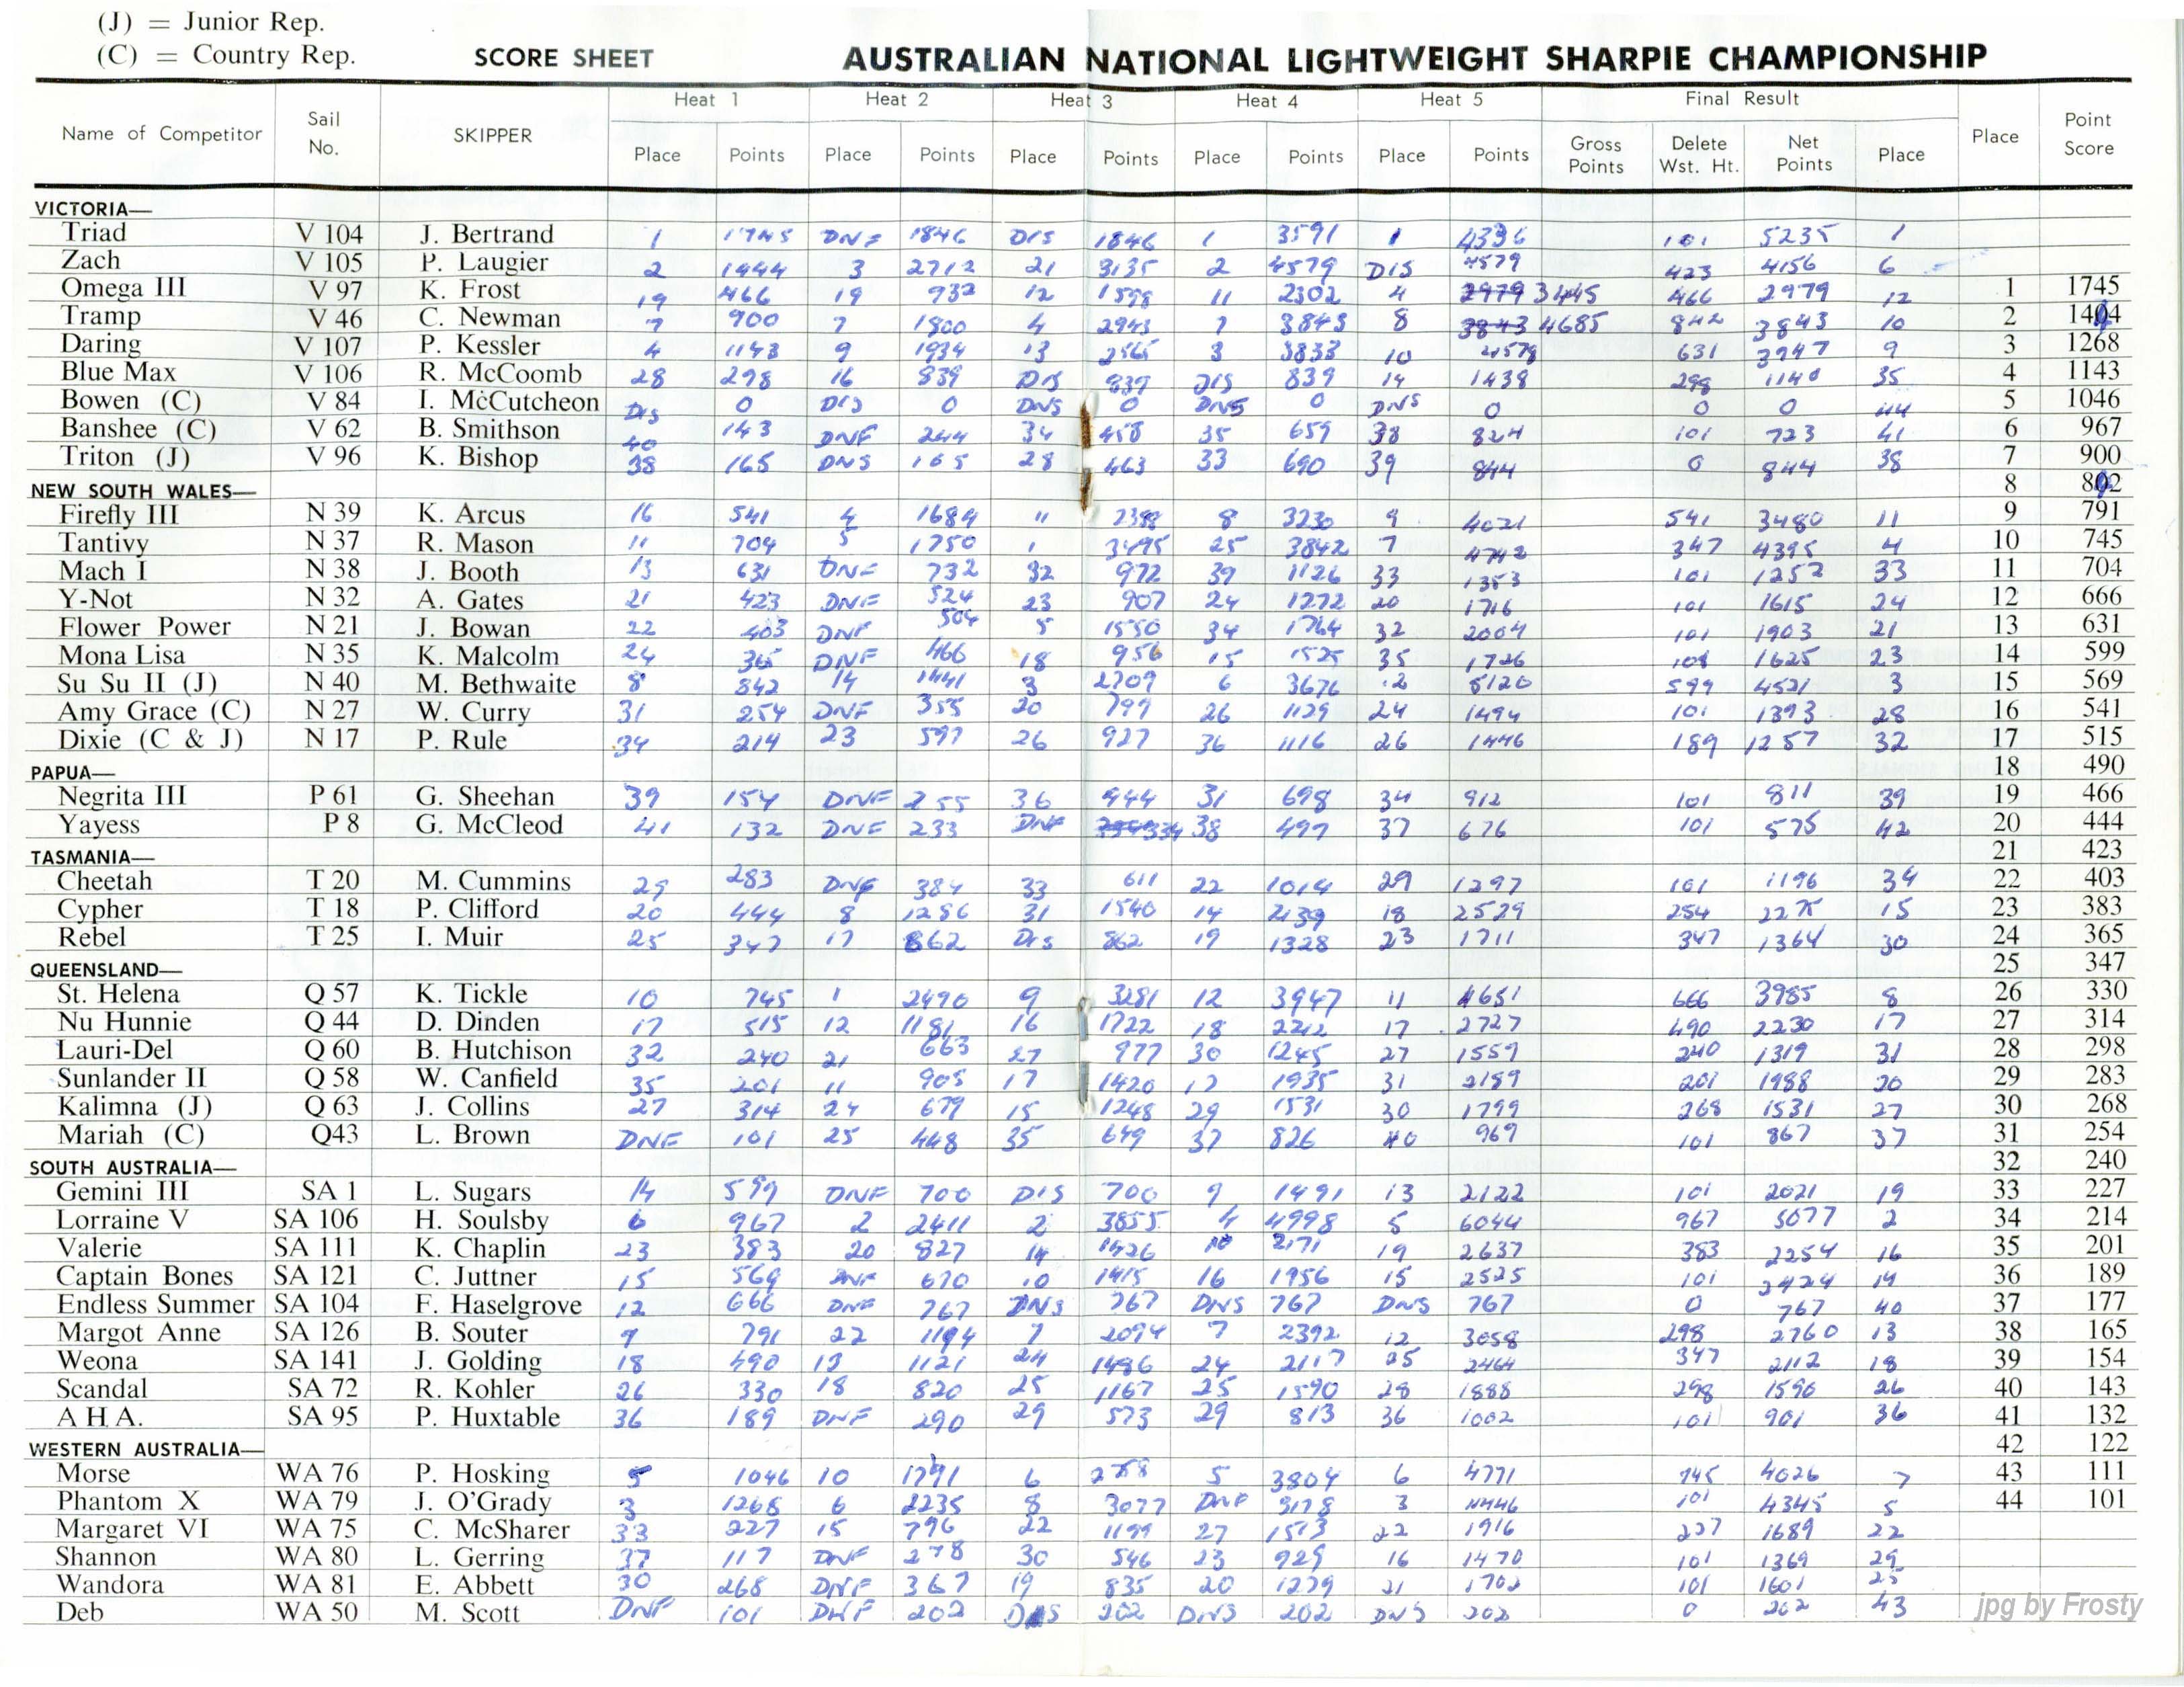 (J) = Junior Rep.
(C) = Country Rep. SCORE SHEET AUSTRALIAN NATIONAL LIGHTWEIGHT SHARPIE CHAMPIONSHIP
Heat 1 Heat 2 Heat 3 Heat 4 Heat 5 Final Result
Name of Competitor Sail No. SKIPPER Place Points Place Points Place Points Place Points Place Points Gross Points Delete Wst. Ht. Net Points Place Place Point Score
VICTORIA—
Triad V 104 J. Bertrand 1 1745 DNF 1846 DIS 1846 1 3591 1 5235 1
Zach V 105 P. Laugier 2 1444 3 2712 21 3135 2 4579 DIS 4579 423 4156 6
Omega III V 97 K. Frost 19 466 19 932 12 1598 11 2302 4 2979 3445 466 2979 12 1 1745
Tramp V 46 C. Newman 7 900 7 1800 4 2943 7 3843 8 3843 4685 842 3843 10 2 1404
Daring V 107 P. Kessler 4 1143 9 1934 13 2565 3 3833 10 4578 631 3947 9 3 1268
Blue Max V 106 R. McCoomb 28 298 16 839 DIS 839 DIS 839 14 1438 298 1140 35 4 1143
Bowen (C) V 84 I. McCutcheon DIS 0 DIS 0 DNS 0 DNS 0 DNS 0 0 0 44 5 1046
Banshee (C) V 62 B. Smithson 40 143 DNF 244 34 458 35 659 38 824 101 723 41 6 967
Triton (J) V 96 K. Bishop 38 165 DNS 165 28 463 33 690 39 844 0 844 38 7 900
NEW SOUTH WALES— 8 802
Firefly III N 39 K. Arcus 16 541 4 1684 11 2388 8 3230 9 4021 541 3480 11 9 791
Tantivy N 37 R. Mason 11 704 5 1750 1 3495 25 3842 7 4742 347 4395 4 10 745
Mach I N 38 J. Booth 13 631 DNF 732 32 972 39 1126 33 1353 101 1252 33 11 704
Y-Not N 32 A. Gates 21 423 DNF 524 23 907 24 1272 20 1716 101 1615 24 12 666
Flower Power N 21 J. Bowan 22 403 DNF 504 5 1550 34 1764 32 2004 101 1903 21 13 631
Mona Lisa N 35 K. Malcolm 24 365 DNF 466 18 956 15 1525 35 1726 101 1625 23 14 599
Su Su II (J) N 40 M. Bethwaite 8 842 14 1441 3 2709 6 3676 2 5120 599 4521 3 15 569
Amy Grace (C) N 27 W. Curry 31 254 DNF 355 20 799 26 1129 24 1494 101 1393 28 16 541
Dixie (C & J) N 17 P. Rule 34 214 23 597 26 927 36 1116 26 1446 189 1257 32 17 515
PAPUA— 18 490
Negrita III P 61 G. Sheehan 39 154 DNF 255 36 444 31 698 34 912 101 811 39 19 466
Yayess P 8 G. McCleod 41 132 DNF 233 DNF 334 38 499 37 676 101 575 42 20 444
TASMANIA— 21 423
Cheetah T 20 M. Cummins 29 283 DNF 384 33 611 22 1014 29 1297 101 1196 34 22 403
Cypher T 18 P. Clifford 20 444 8 1286 31 1540 14 2139 18 2529 254 2275 15 23 383
Rebel T 25 I. Muir 25 347 17 862 DIS 862 19 1328 23 1711 347 1364 30 24 365
QUEENSLAND— 25 347
St. Helena Q 57 K. Tickle 10 745 1 2490 9 3281 12 3947 11 4651 666 3985 8 26 330
Nu Hunnie Q 44 D. Dinden 17 515 12 1181 16 1722 18 2212 17 2727 490 2230 17 27 314
Lauri-Del Q 60 B. Hutchison 32 240 21 663 27 977 30 1245 27 1559 240 1319 31 28 298
Sunlander II Q 58 W. Canfield 35 201 11 905 17 1420 17 1935 31 2189 201 1988 20 29 283
Kalimna (J) Q 63 J. Collins 27 314 24 679 15 1248 29 1531 30 1799 268 1531 27 30 268
Mariah (C) Q43 L. Brown DNF 101 25 448 35 649 37 826 40 969 101 867 37 31 254
SOUTH AUSTRALIA— 32 240
Gemini III SA 1 L. Sugars 14 599 DNF 700 DIS 700 9 1491 13 2122 101 2021 19 33 227
Lorraine V SA 106 H. Soulsby 6 967 2 2411 2 3855 4 4998 5 6044 967 5077 2 34 214
Valerie SA 111 K. Chaplin 23 383 20 827 14 1426 10 2171 19 2637 383 2254 16 35 201
Captain Bones SA 121 C. Juttner 15 569 DNF 670 10 1415 16 1956 15 2525 101 2424 14 36 189
Endless Summer SA 104 F. Haselgrove 12 666 DNF 767 DNS 767 DNS 767 DNS 767 0 767 40 37 177
Margot Anne SA 126 B. Souter 9 791 22 1194 7 2094 7 2392 12 3058 298 2760 13 38 165
Weona SA 141 J. Golding 18 490 13 1121 24 1486 24 2117 25 2464 347 2112 18 39 154
Scandal SA 72 R. Kohler 26 330 18 820 25 1167 25 1590 28 1888 298 1590 26 40 143
A H A. SA 95 P. Huxtable 36 189 DNF 290 29 573 29 813 36 1002 101 901 36 41 132
WESTERN AUSTRALIA— 42 122
Morse WA 76 P. Hosking 5 1046 10 1791 6 2758 5 3804 6 4771 745 4026 7 43 111
Phantom X WA 79 J. O'Grady 3 1268 6 2235 8 3077 DNF 3178 3 4446 101 4345 5 44 101
Margaret VI WA 75 C. McSharer 33 227 15 796 22 1199 27 1513 22 1916 227 1689 22
Shannon WA 80 L. Gerring 37 117 DNF 278 30 546 23 929 16 1470 101 1369 29
Wandora WA 81 E. Abbett 30 268 DNF 367 19 835 20 1279 21 1702 101 1601 25
Deb WA 50 M. Scott DNF 101 DNF 202 DNS 202 DNS 202 DNS 202 0 202 43
jpg by Frosty